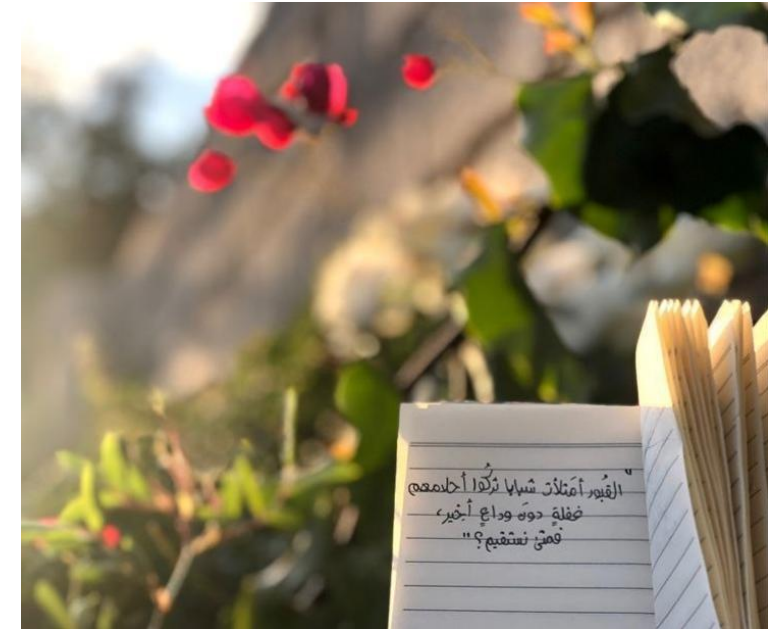 "القُبور أمتلأت شبابا تركُوا أحلامهم
غفلةٍ دونَ وداعٍ أخير،
فمتىٰ نستقيم؟"